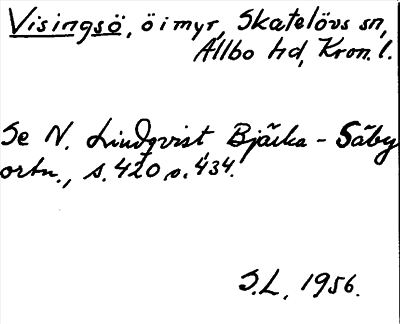 Visingsö, ö i myr, Skatelövs sn,
Allbo hd, Kron. l.
Se N. Lindqvist, Bjärka - Säby
ortn., s. 420 o. 434.
S.L. 1956.